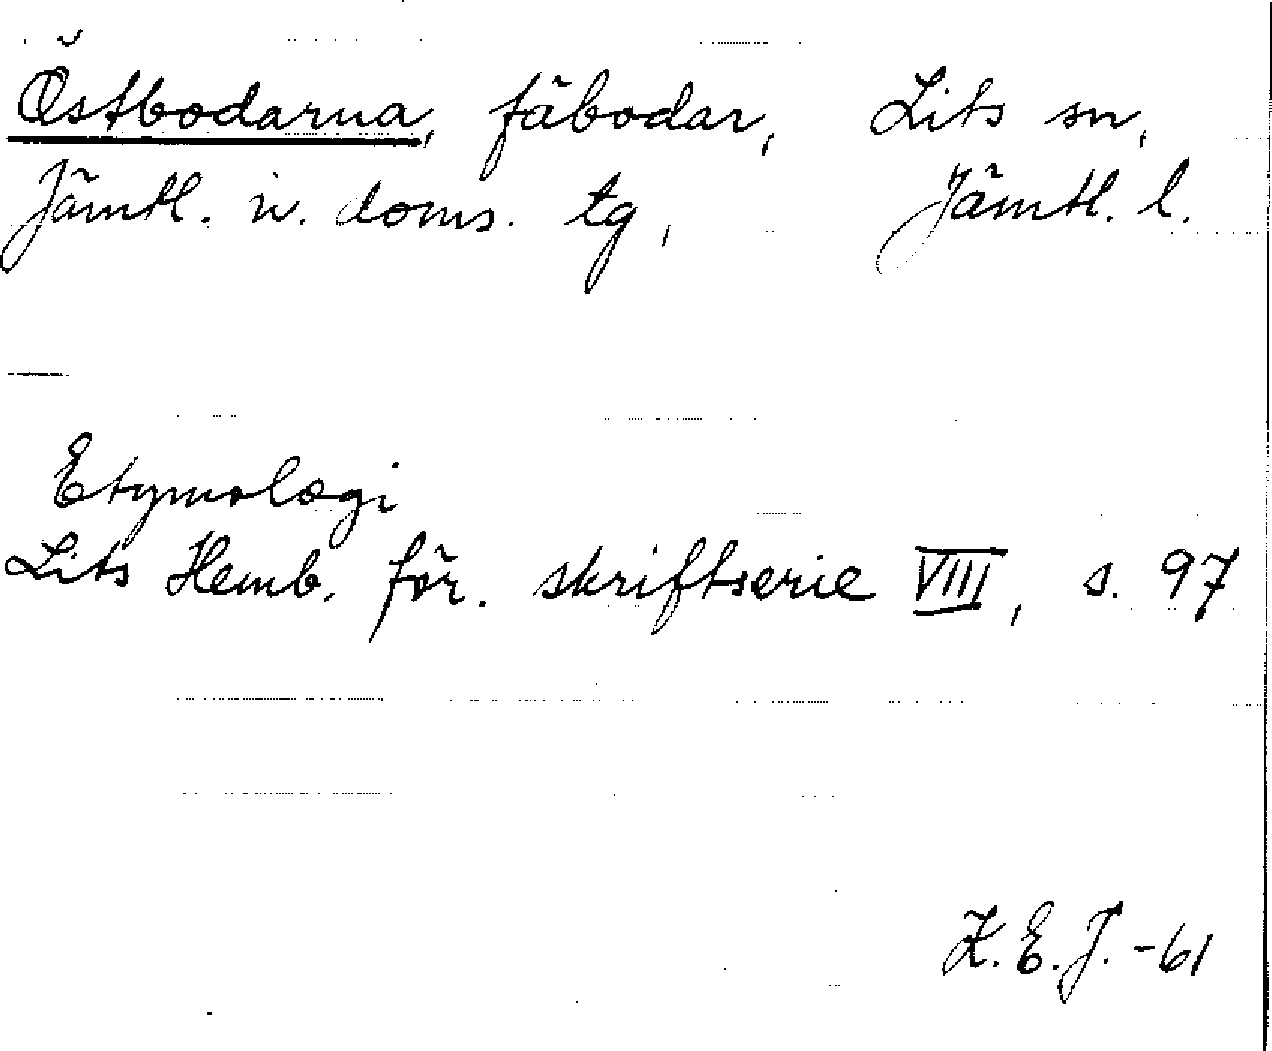 Östbodarna, fäbodar, Lits sn,
Jämtl. n. doms. tg, Jämtl. l.
Etymologi
Lits Hemb. för. skriftserie VIII, s. 97
K.E.J. -61